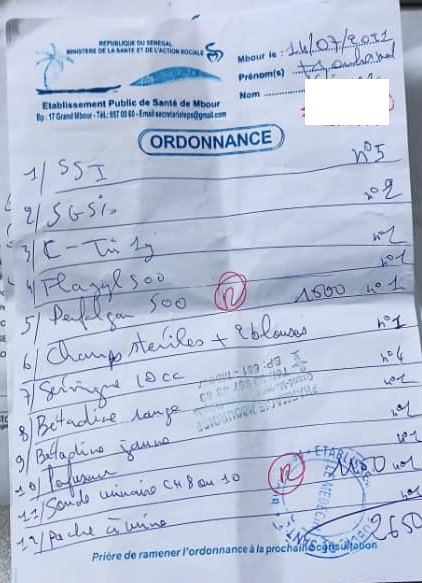 REPUBLIQUE DU SENEGAL
MINISTERE DE LA SANTE ET DE L'ACTION SOCIALE
Etablissement Public de Santé de Mbour
Bp : 17 Grand Mbour - Tél.: 957 00 60 - Email secretariateps@gmail.com
Mbour le : 14/07/2021
Prénom(s)
Nom
ORDONNANCE
1/ SSI n°5
2/ SG5% n°2
3/ C-Tri 1g n°1
4/ Flagyl 500 n°1
5/ Perfalgan 500 1500 n°1
6/ Champs stériles + 2 blouses n°1
7/ Seringue 10cc n°4
8/ Bétadine rouge n°1
9/ Bétadine jaune n°1
10/ Perfuseur n°1
11/ Sonde urinaire CH 8 ou 10 1150 n°1
12/ Poche à urine n°1
2650
Prière de ramener l'ordonnance à la prochaine consultation